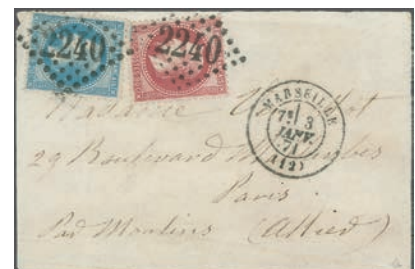 2240 2240
MARSEILLE
7E 3
JANV.
71
(12)
Madame
29 Boulevard
Paris
Par Moulins (Allier)